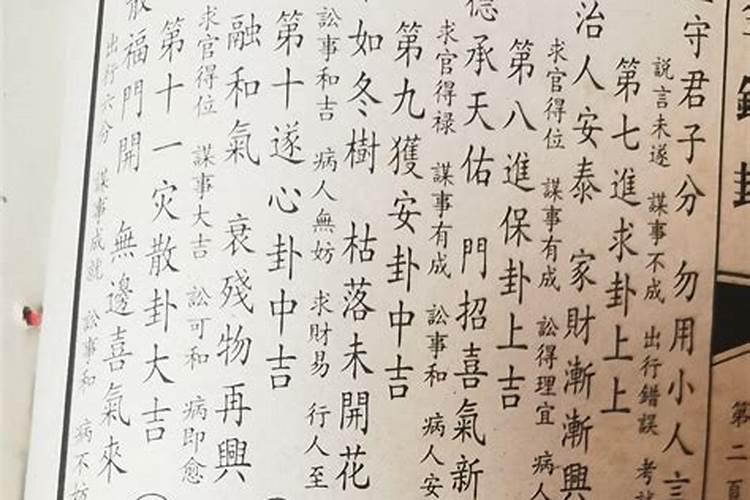 守君子分　勿用小人言
說言未遂　謀事不成　出行錯誤　考
第七進求卦上上
治人安泰　家財漸漸興
求官得位　謀事有成　訟得理宜　病人
第八進保卦上吉
承天佑　門招喜氣新
求官得祿　謀事有成　訟事和　病人安
第九獲安卦中吉
如冬樹　枯落未開花
訟事和吉　病人無妨　求財易　行人至
第十遂心卦中吉
融和氣　衰殘物再興
求官得位　謀事大吉　訟可和　病即愈
第十一灾散卦大吉
福門開　無邊喜氣來
出行六分　謀事成就　訟事和　病不妨
第二頁